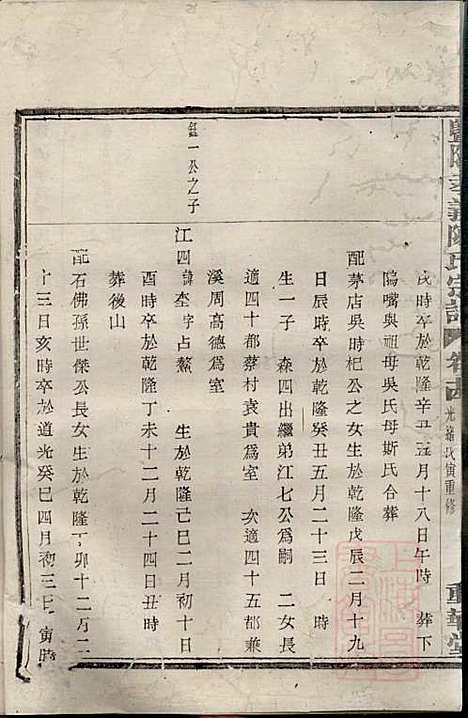 暨陽孝義陳氏宗譜 卷 光緒戊寅重修 重華堂
戌時卒於乾隆辛丑五月十八日午時 葬下
隖嘴與祖母吳氏母斯氏合葬
配茅店吳時杞公之女生於乾隆戊辰二月十九
日辰時卒於乾隆癸丑五月二十三日 時
生一子 森四出繼弟江七公爲嗣 二女長
適四十都蔡村袁貴爲室 次適四十五都兼
溪周高德爲室
鈺一公之子
江四 諱奎字占鰲 生於乾隆己巳二月初十日
酉時卒於乾隆丁未十二月二十四日丑時
葬後山
配石佛孫世傑公長女生於乾隆丁卯十二月二
十三日亥時卒於道光癸巳四月初三日寅時